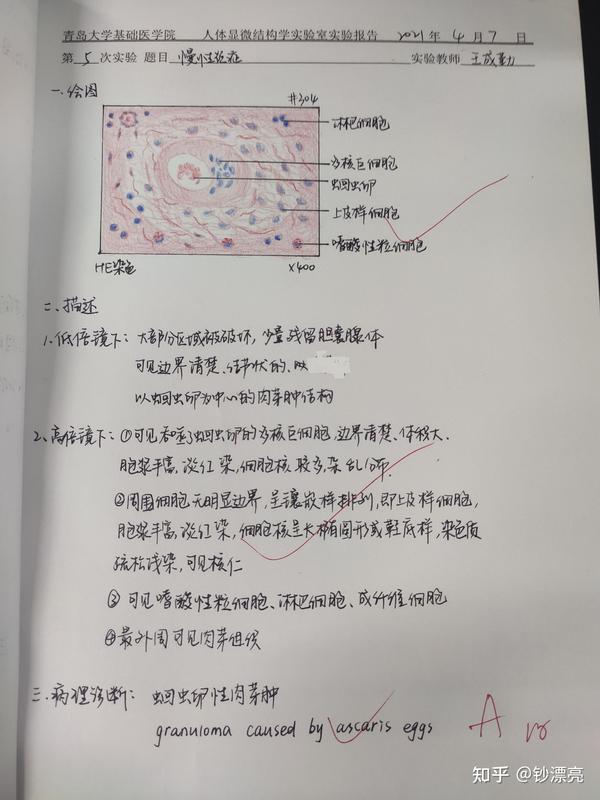 青岛大学基础医学院 人体显微结构学实验室实验报告 2021年 4月 7日
第 5 次实验 题目 慢性炎症 实验教师 王成勤
一.绘图
#304
淋巴细胞
多核巨细胞
蛔虫卵
上皮样细胞
嗜酸性粒细胞
HE染色 ×400
二.描述
1.低倍镜下: 大部分区域被破坏,少量残留胆囊腺体
可见边界清楚、结节状的、
以蛔虫卵为中心的肉芽肿结构
2.高倍镜下: ①可见吞噬了蛔虫卵的多核巨细胞,边界清楚、体积大.
胞浆丰富,淡红染,细胞核较多,杂乱分布.
②周围细胞无明显边界,呈镶嵌样排列,即上皮样细胞,
胞浆丰富,淡红染,细胞核呈长椭圆形或鞋底样,染色质
疏松浅染,可见核仁
③可见嗜酸性粒细胞、淋巴细胞、成纤维细胞
④最外周可见肉芽组织
三.病理诊断: 蛔虫卵性肉芽肿
granuloma caused by ascaris eggs A
知乎 @钞漂亮